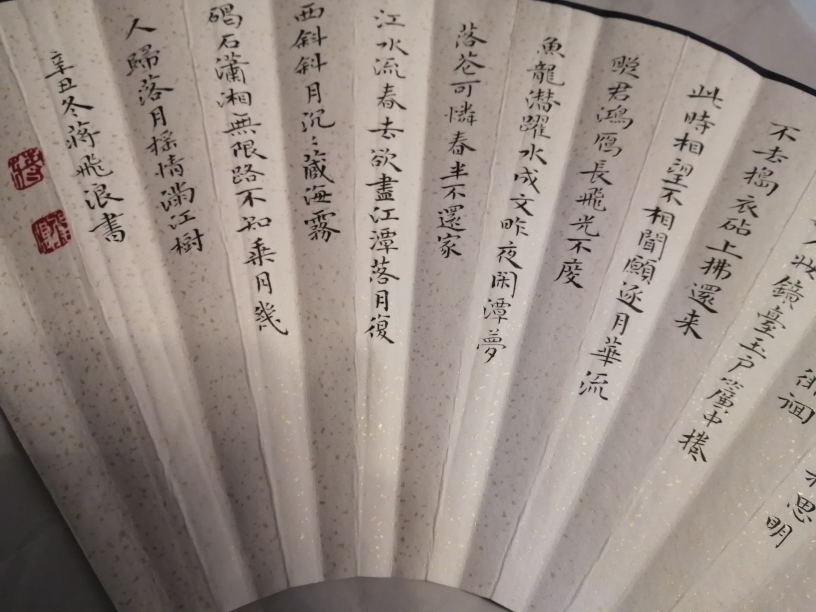 思明
人妝鏡臺玉戶簾中捲
不去搗衣砧上拂還来
此時相望不相聞願逐月華流
照君鴻鴈長飛光不度
魚龍潛躍水成文昨夜闲潭夢
落花可憐春半不還家
江水流春去欲盡江潭落月復
西斜斜月沉〻藏海霧
碣石瀟湘無限路不知乘月幾
人歸落月搖情滿江樹
辛丑冬蔣飛浪書